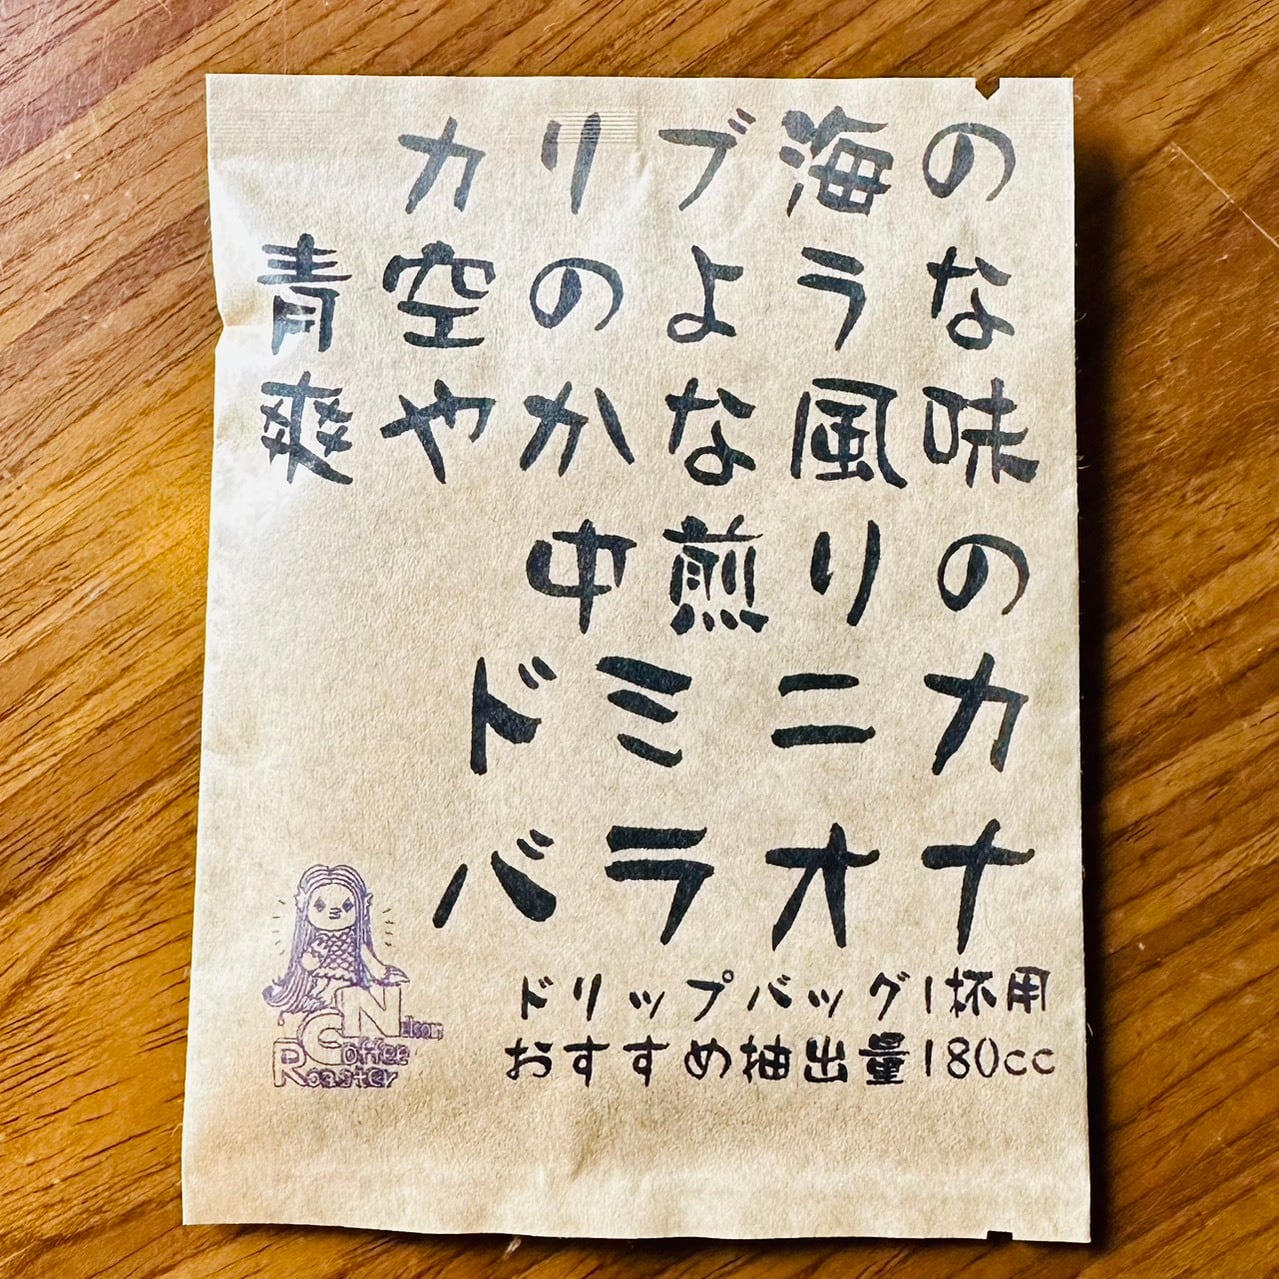 カリブ海の
青空のような
爽やかな風味
中煎りの
ドミニカ
バラオナ
ドリップバッグ1杯用
おすすめ抽出量180cc
Nelson
Coffee
Roaster